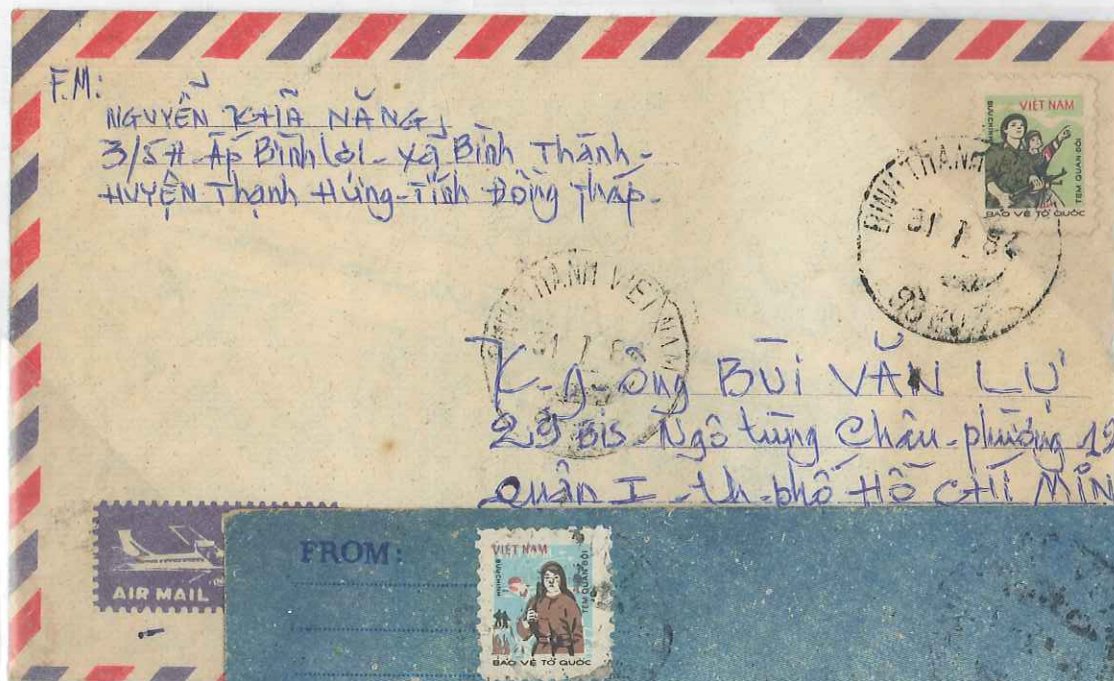 F.M:
NGUYỄN KHÃ NĂNG
3/5# Ấp Bình lợi - Xã Bình Thành -
HUYỆN Thạnh Hưng - Tỉnh Đồng Tháp.
VIỆT NAM
BƯU CHÍNH
TEM QUÂN ĐỘI
BẢO VỆ TỔ QUỐC
BINH THANH
31 1 84
BINH THANH VIET NAM
31 1 8
K-g-Ông BÙI VĂN LỰ
29 Bis - Ngô tùng Châu - phường 19
Quận I - th-phố HỒ CHÍ MIN
AIR MAIL
FROM:
VIỆT NAM
BƯU CHÍNH
TEM QUÂN ĐỘI
BẢO VỆ TỔ QUỐC